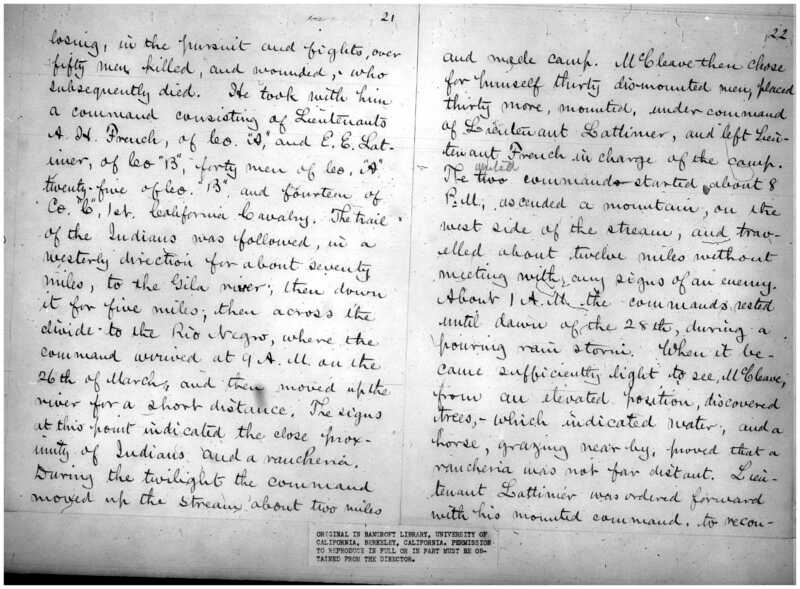 21
losing, in the pursuit and fights, over
fifty men killed, and wounded, - who
subsequently died. He took with him
a command consisting of Lieutenants
A. H. French, of Co. "A" and E. E. Lat-
imer, of Co "B", forty men of Co. "A"
twenty-five of Co. "B", and fourteen of
Co. "C", 1st. California Cavalry. The trail
of the Indians was followed, in a
westerly direction for about seventy
miles, to the Gila river; then down
it for five miles; then across the
divide to the Rio Negro, where the
command arrived at 9 A. M on the
26th of March, and then moved up the
river for a short distance. The signs
at this point indicated the close prox-
imity of Indians and a rancheria.
During the twilight the command
moved up the stream about two miles
22
and made camp. McCleave then chose
for himself thirty dismounted men, placed
thirty more, mounted, under command
of Lieutenant Lattimer, and left Lieu-
tenant French in charge of the camp.
united
The two commands started about 8
P. M., ascended a mountain, on the
west side of the stream, and trav-
elled about twelve miles without
meeting with any signs of an enemy.
About 1 A. M. the commands rested
until dawn of the 28th, during a
pouring rain storm. When it be-
came sufficiently light to see, McCleave,
from an elevated position, discovered
trees, - which indicated water, and a
horse, grazing near by, proved that a
rancheria was not far distant. Lieu-
tenant Lattimer was ordered forward
with his mounted command, to recon-
ORIGINAL IN BANCROFT LIBRARY, UNIVERSITY OF
CALIFORNIA, BERKELEY, CALIFORNIA. PERMISSION
TO REPRODUCE IN FULL OR IN PART MUST BE OB-
TAINED FROM THE DIRECTOR.